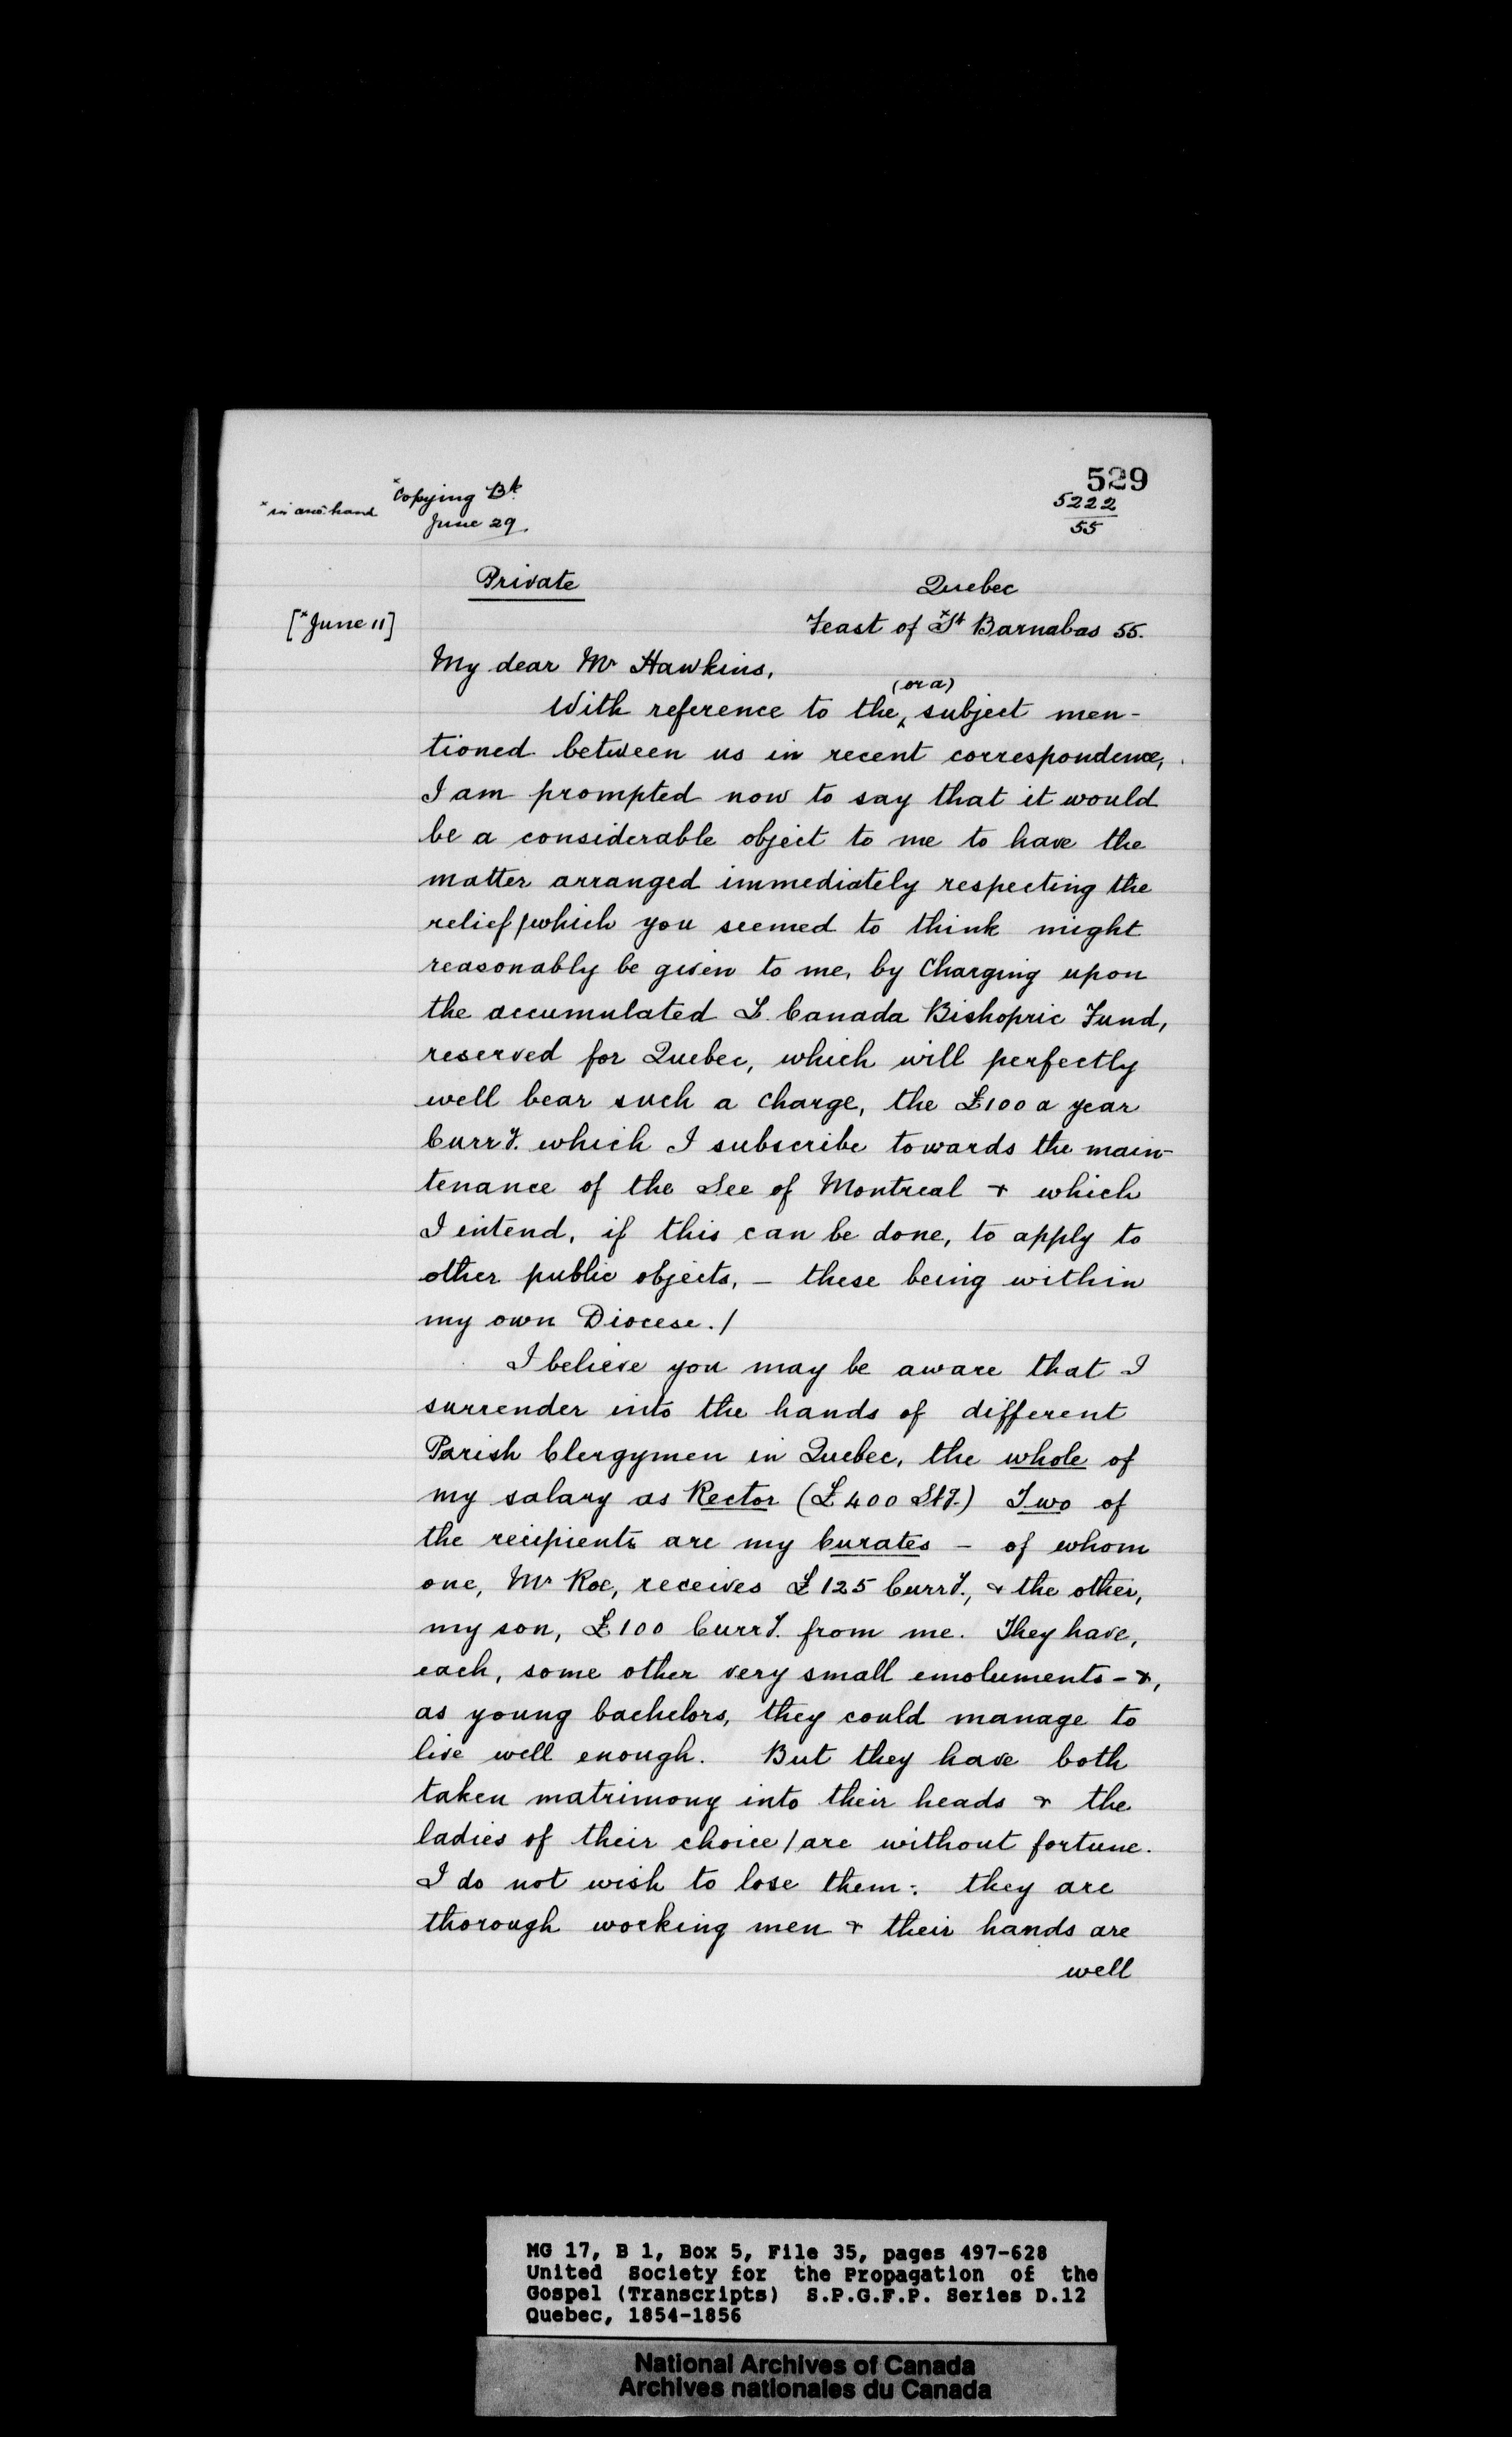 529
*Copying Bk.
*in ano: hand
June 29.
5222
55
Private
Quebec
[*June 11]
Feast of *St Barnabas 55.
My dear Mr Hawkins,
(or a)
With reference to the ‸ subject men-
tioned between us in recent correspondence,
I am prompted now to say that it would
be a considerable object to me to have the
matter arranged immediately respecting the
relief / which you seemed to think might
reasonably be given to me, by Charging upon
the accumulated L. Canada Bishopric Fund,
reserved for Quebec, which will perfectly
well bear such a charge, the £100 a year
Curry. which I subscribe towards the main-
tenance of the See of Montreal & which
I intend, if this can be done, to apply to
other public objects, – these being within
my own Diocese. /
I believe you may be aware that I
surrender into the hands of different
Parish Clergymen in Quebec, the whole of
my salary as Rector (£400 Stg.) Two of
the recipients are my Curates – of whom
one, Mr Roe, receives £125 Curry., & the other,
my son, £100 Curry. from me. They have,
each, some other very small emoluments - &,
as young bachelors, they could manage to
live well enough. But they have both
taken matrimony into their heads & the
ladies of their choice / are without fortune.
I do not wish to lose them: they are
thorough working men & their hands are
well
MG 17, B 1, Box 5, File 35, pages 497-628
United Society for the Propagation of the
Gospel (Transcripts) S.P.G.F.P. Series D.12
Quebec, 1854-1856
National Archives of Canada
Archives nationales du Canada